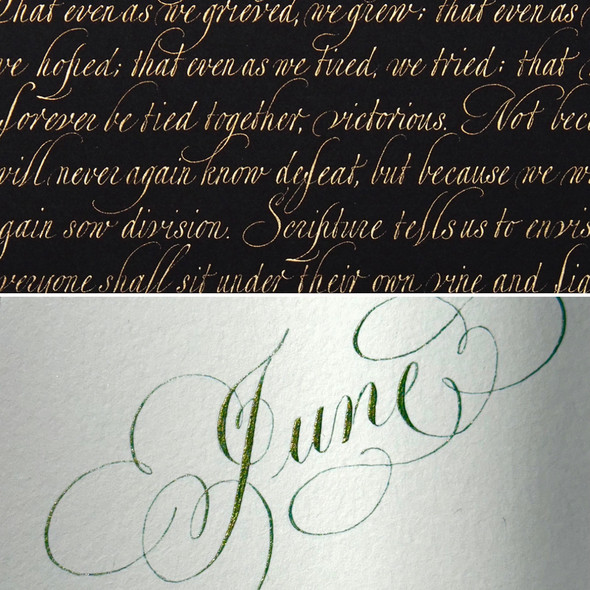 That even as we grieved, we grew; that even as
we hoped; that even as we tired, we tried; that
forever be tied together, victorious. Not bec
will never again know defeat, but because we w
gain sow division. Scripture tells us to envis
veryone shall sit under their own vine and fig
June